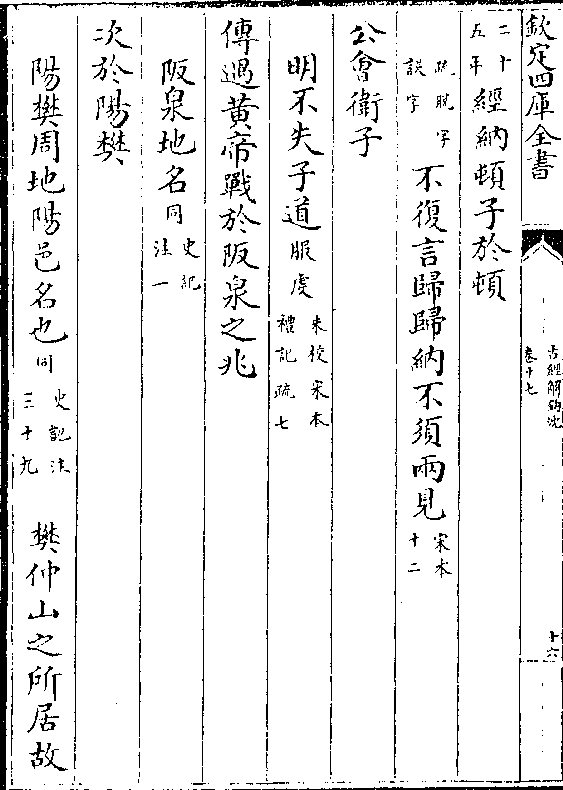 欽定四庫全書
古經解鉤沈
卷十七
十六
二十五年經納頓子於頓
疏脫字誤字不復言歸歸納不須兩見宋本十二
公會衛子
明不失子道服虔未校宋本禮記疏七
傳遇黃帝戰於阪泉之兆
阪泉地名同史記注一
次於陽樊
陽樊周地陽邑名也同史記注三十九樊仲山之所居故